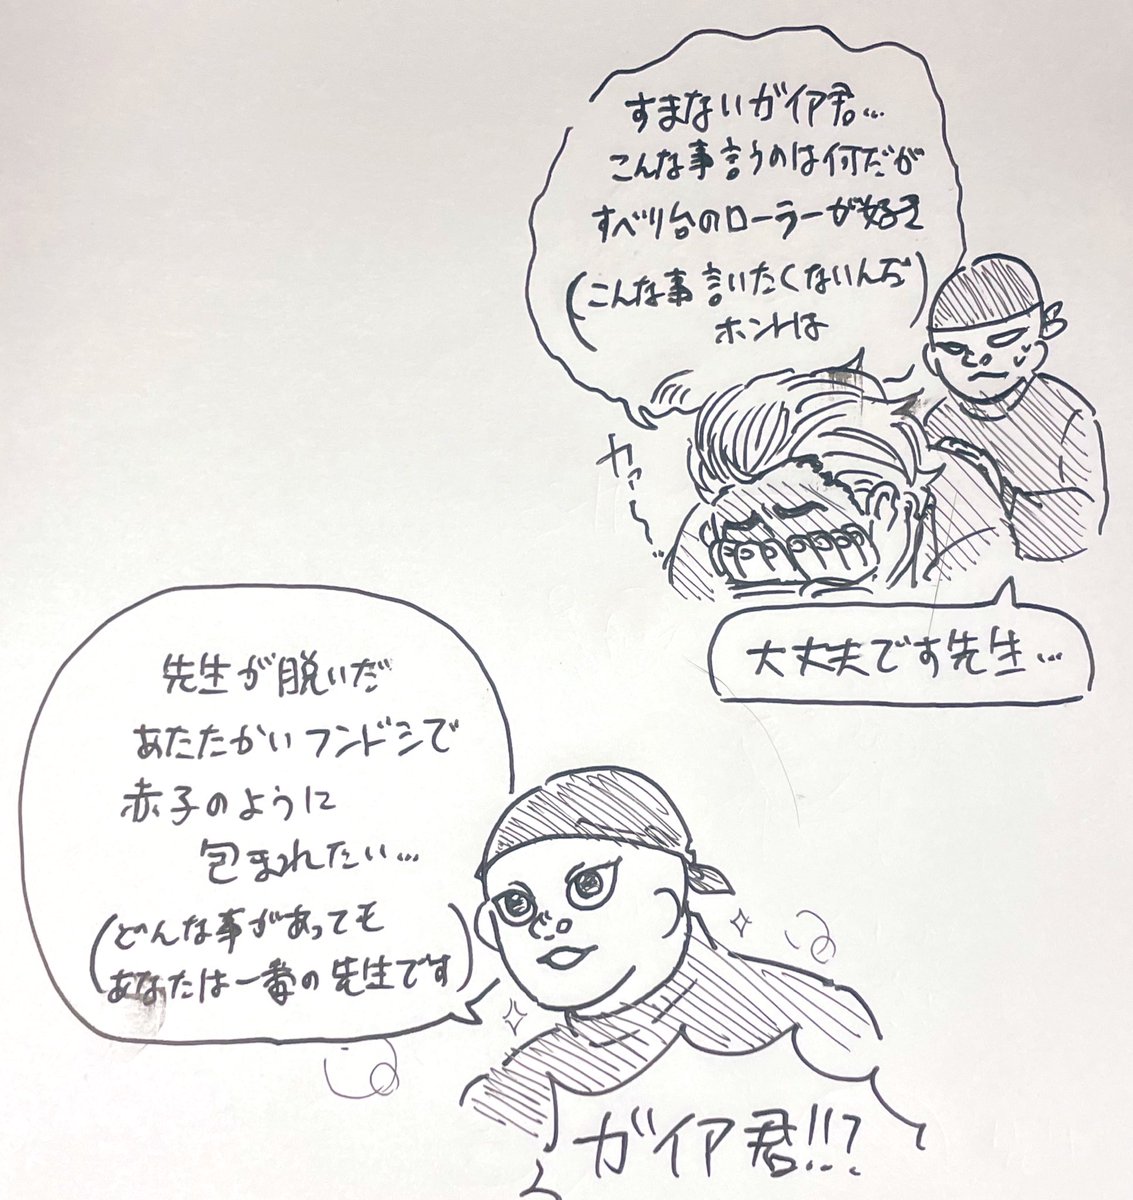 すまないガイア君…
こんな事言うのは何だが
すべり台のローラーが好き
(こんな事言いたくないんだ
ホントは)
カァ〜…
大丈夫です先生…
先生が脱いだ
あたたかいフンドシで
赤子のように
包まれたい…
(どんな事があっても
あなたは一番の先生です)
ガイア君!!?